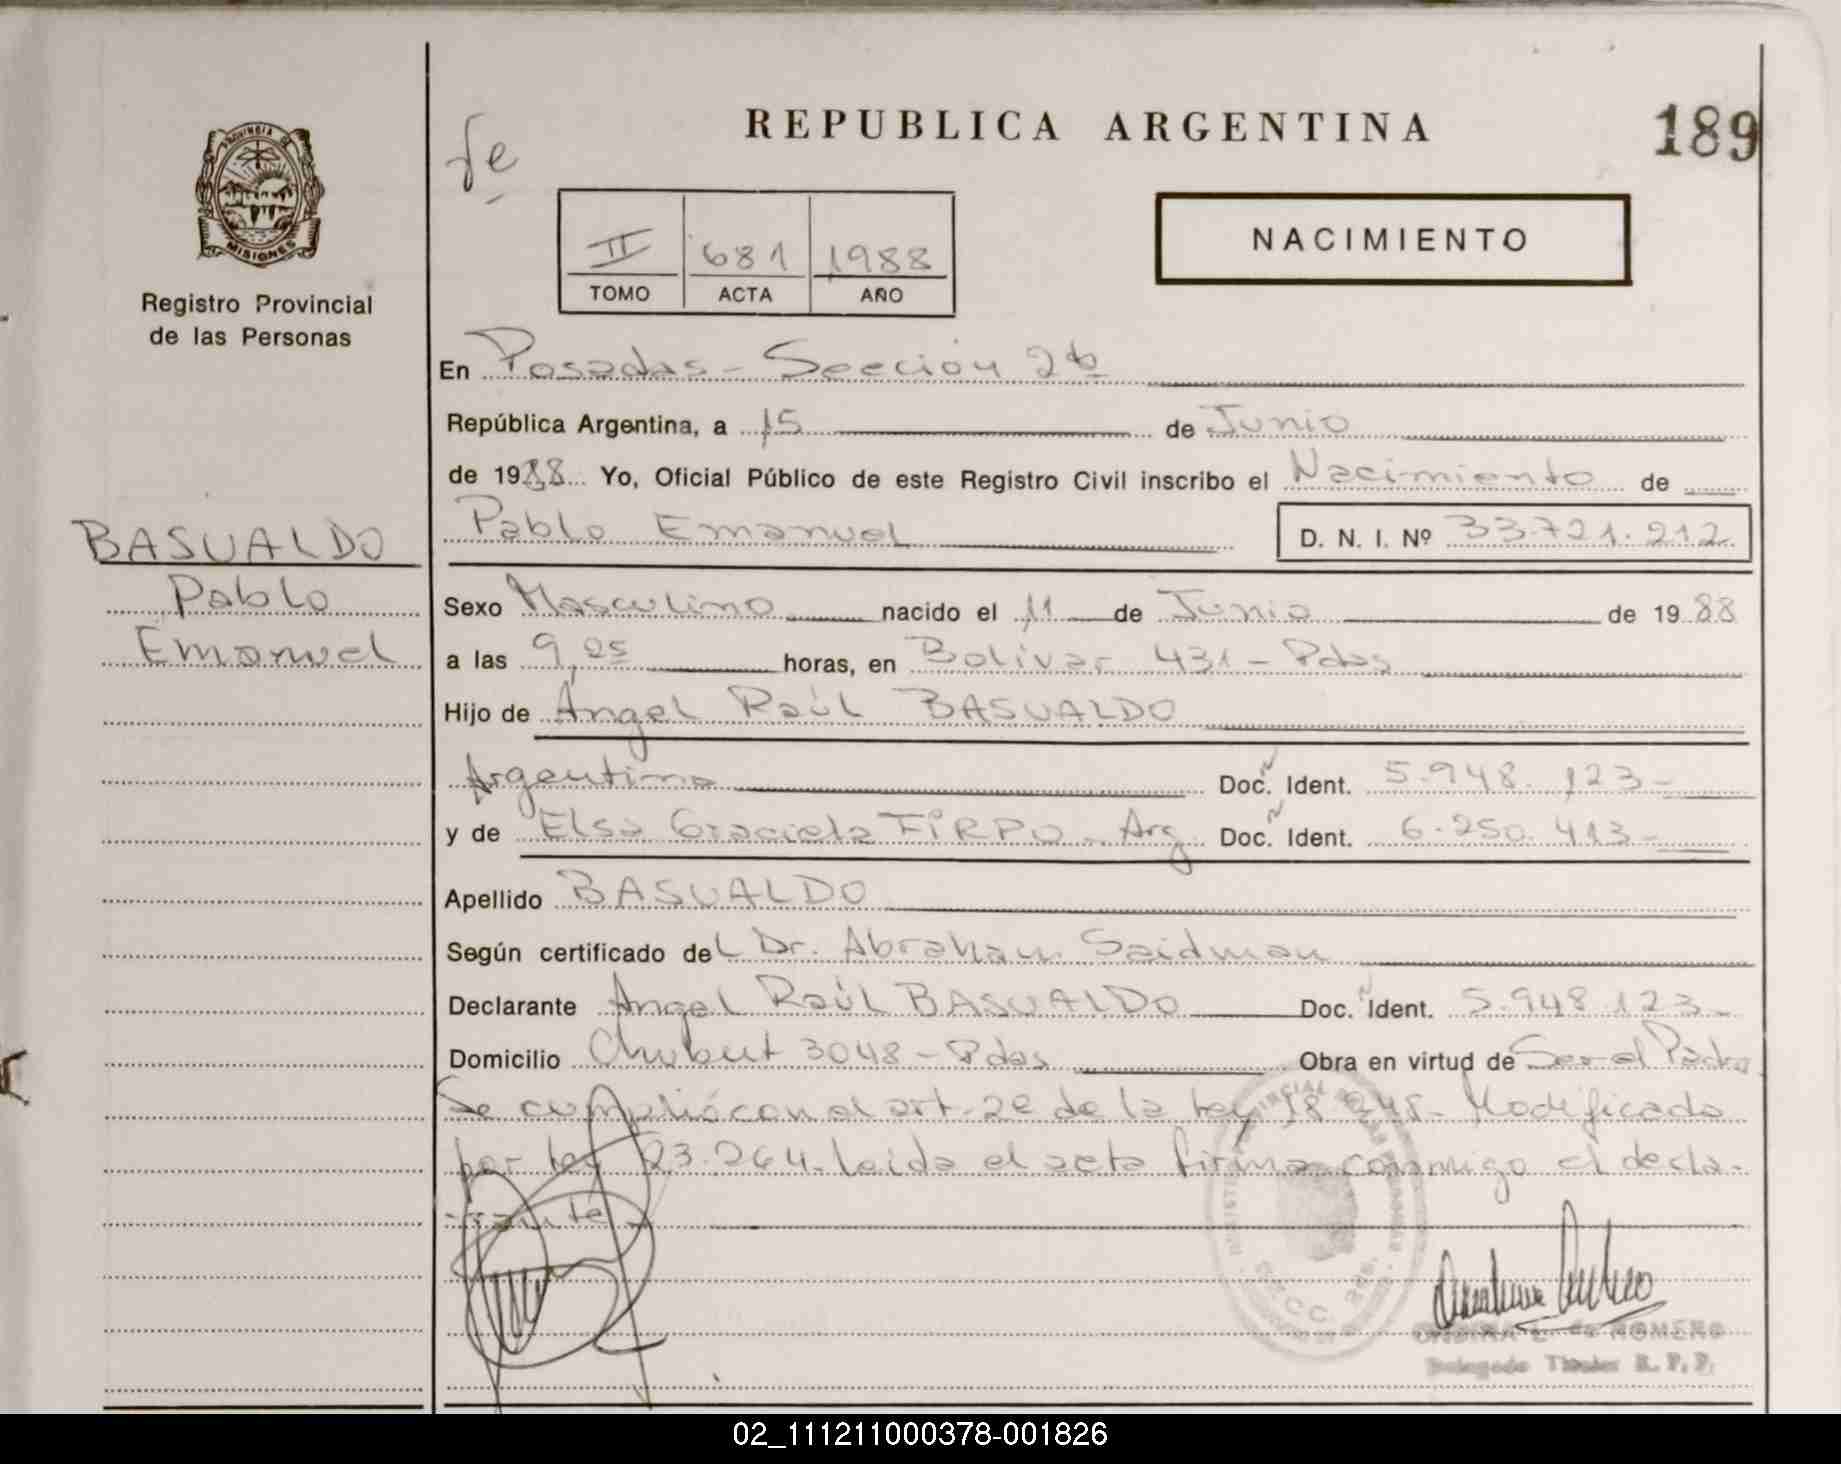 REPUBLICA ARGENTINA
189
PROVINCIA DE
MISIONES
Registro Provincial
de las Personas
fe
II 681 1988
TOMO ACTA AÑO
NACIMIENTO
En Posadas - Sección 2da
República Argentina, a 15 de Junio
de 1988 Yo, Oficial Público de este Registro Civil inscribo el Nacimiento de
Pablo Emanuel D. N. I. Nº 33.721.212
BASUALDO
Pablo
Emanuel
Sexo Masculino nacido el 11 de Junio de 1988
a las 9,25 horas, en Bolivar 431 - Pdas
Hijo de Angel Raúl BASUALDO
Argentino Doc. Ident. 5.948.123-
y de Elsa Graciela FIRPO - Arg. Doc. Ident. 6.250.413-
Apellido BASUALDO
Según certificado del Dr. Abraham Saidman
Declarante Angel Raúl BASUALDO Doc. Ident. 5.948.123-
Domicilio Chubut 3048 - Pdas Obra en virtud de Ser el Padre
Se cumplió con el art. 2º de la Ley 18.248. Modificado
por ley 23.264. leida el acta firma conmigo el decla-
rante
de ROMERO
Delegado Titular R. P. P.
02_111211000378-001826